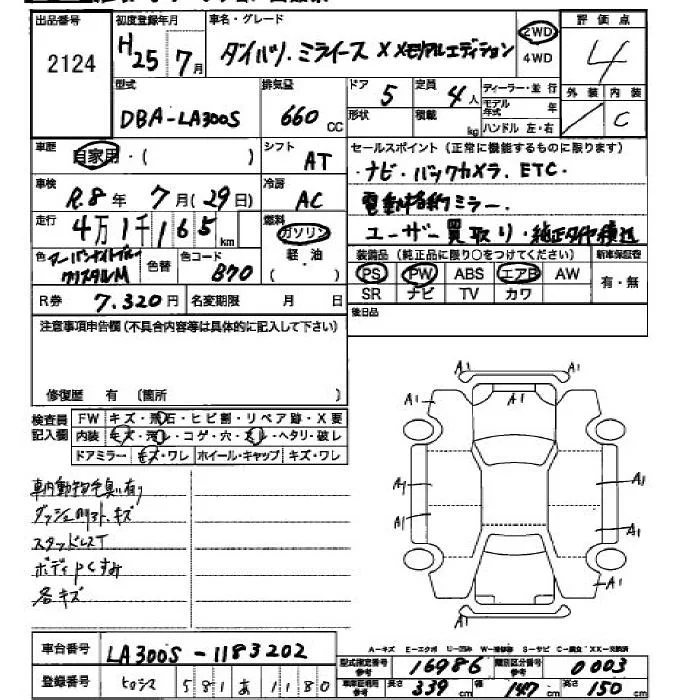 出品番号 初度登録年月 車名・グレード 評価点
2124 H25年7月 ダイハツ.ミライース X メモリアルエディション 2WD 4WD 4
型式 排気量 ドア 定員 ディーラー・並行 外装 内装
DBA-LA300S 660cc 5 4人 モデル年式 年 C
形状 積載 kg ハンドル 左・右
車歴 自家用・( ) シフト AT セールスポイント(正常に機能するものに限ります)
車検 R.8年7月(29日) 冷房 AC ・ナビ・バックカメラ.ETC・
電動格納ミラー.
走行 4万1千165km 燃料 ガソリン 軽・油 ( ) ユーザー買取り・純正タイヤ積込
色 クリスタルM 色替 色コード B70 装備品(純正品に限り○をつけてください) 新車保証書
PS PW ABS エアB AW 有・無
R券 7.320円 名変期限 月 日 SR ナビ TV カワ
注意事項申告欄(不具合内容等は具体的に記入して下さい) 後日品
修復歴 有 (箇所 )
検査員記入欄 FW キズ・飛石・ヒビ割・リペア跡・X要
内装 キズ・汚レ・コゲ・穴・スレ・ヘタリ・破レ
ドアミラー キズ・ワレ ホイール・キャップ キズ・ワレ
車内動物毛臭い有り
キズ
スタッドレスT
ボディPくすみ
各キズ
A1 A1
A1 A1 A1
A1 A1
A1 A1
A1
車台番号 LA300S-1183202
A-キズ E-エクボ
型式指定番号 参考 16986 類別区分番号 参考 0003
登録番号 581あ1180 長さ 339cm 幅 147cm 高さ 150cm